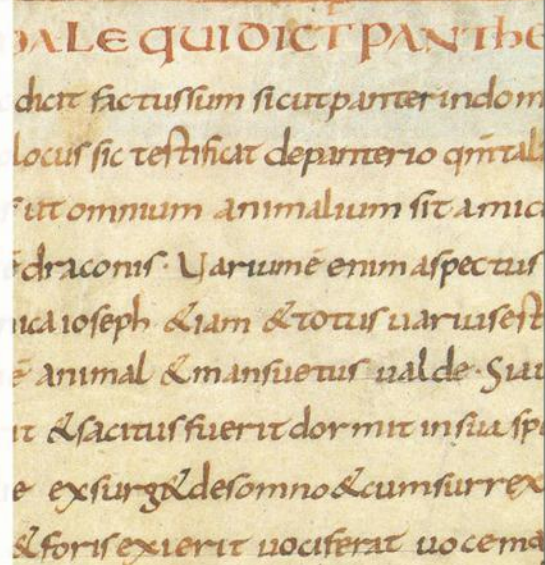 ALE QUI DICT PANTHE
dicit factus sum sicut panter in dom
locus sic testificat de panterio qm tal
ut omnium animalium sit amic
ē draconis. Uarium ē enim aspectus
ica ioseph &iam &totus uarius est
ē animal &mansuetus ualde. Siu
it &sacitus fuerit dormit in sua spe
e exsurg& de somno &cum surrex
&foris exierit uociferat uoce ma